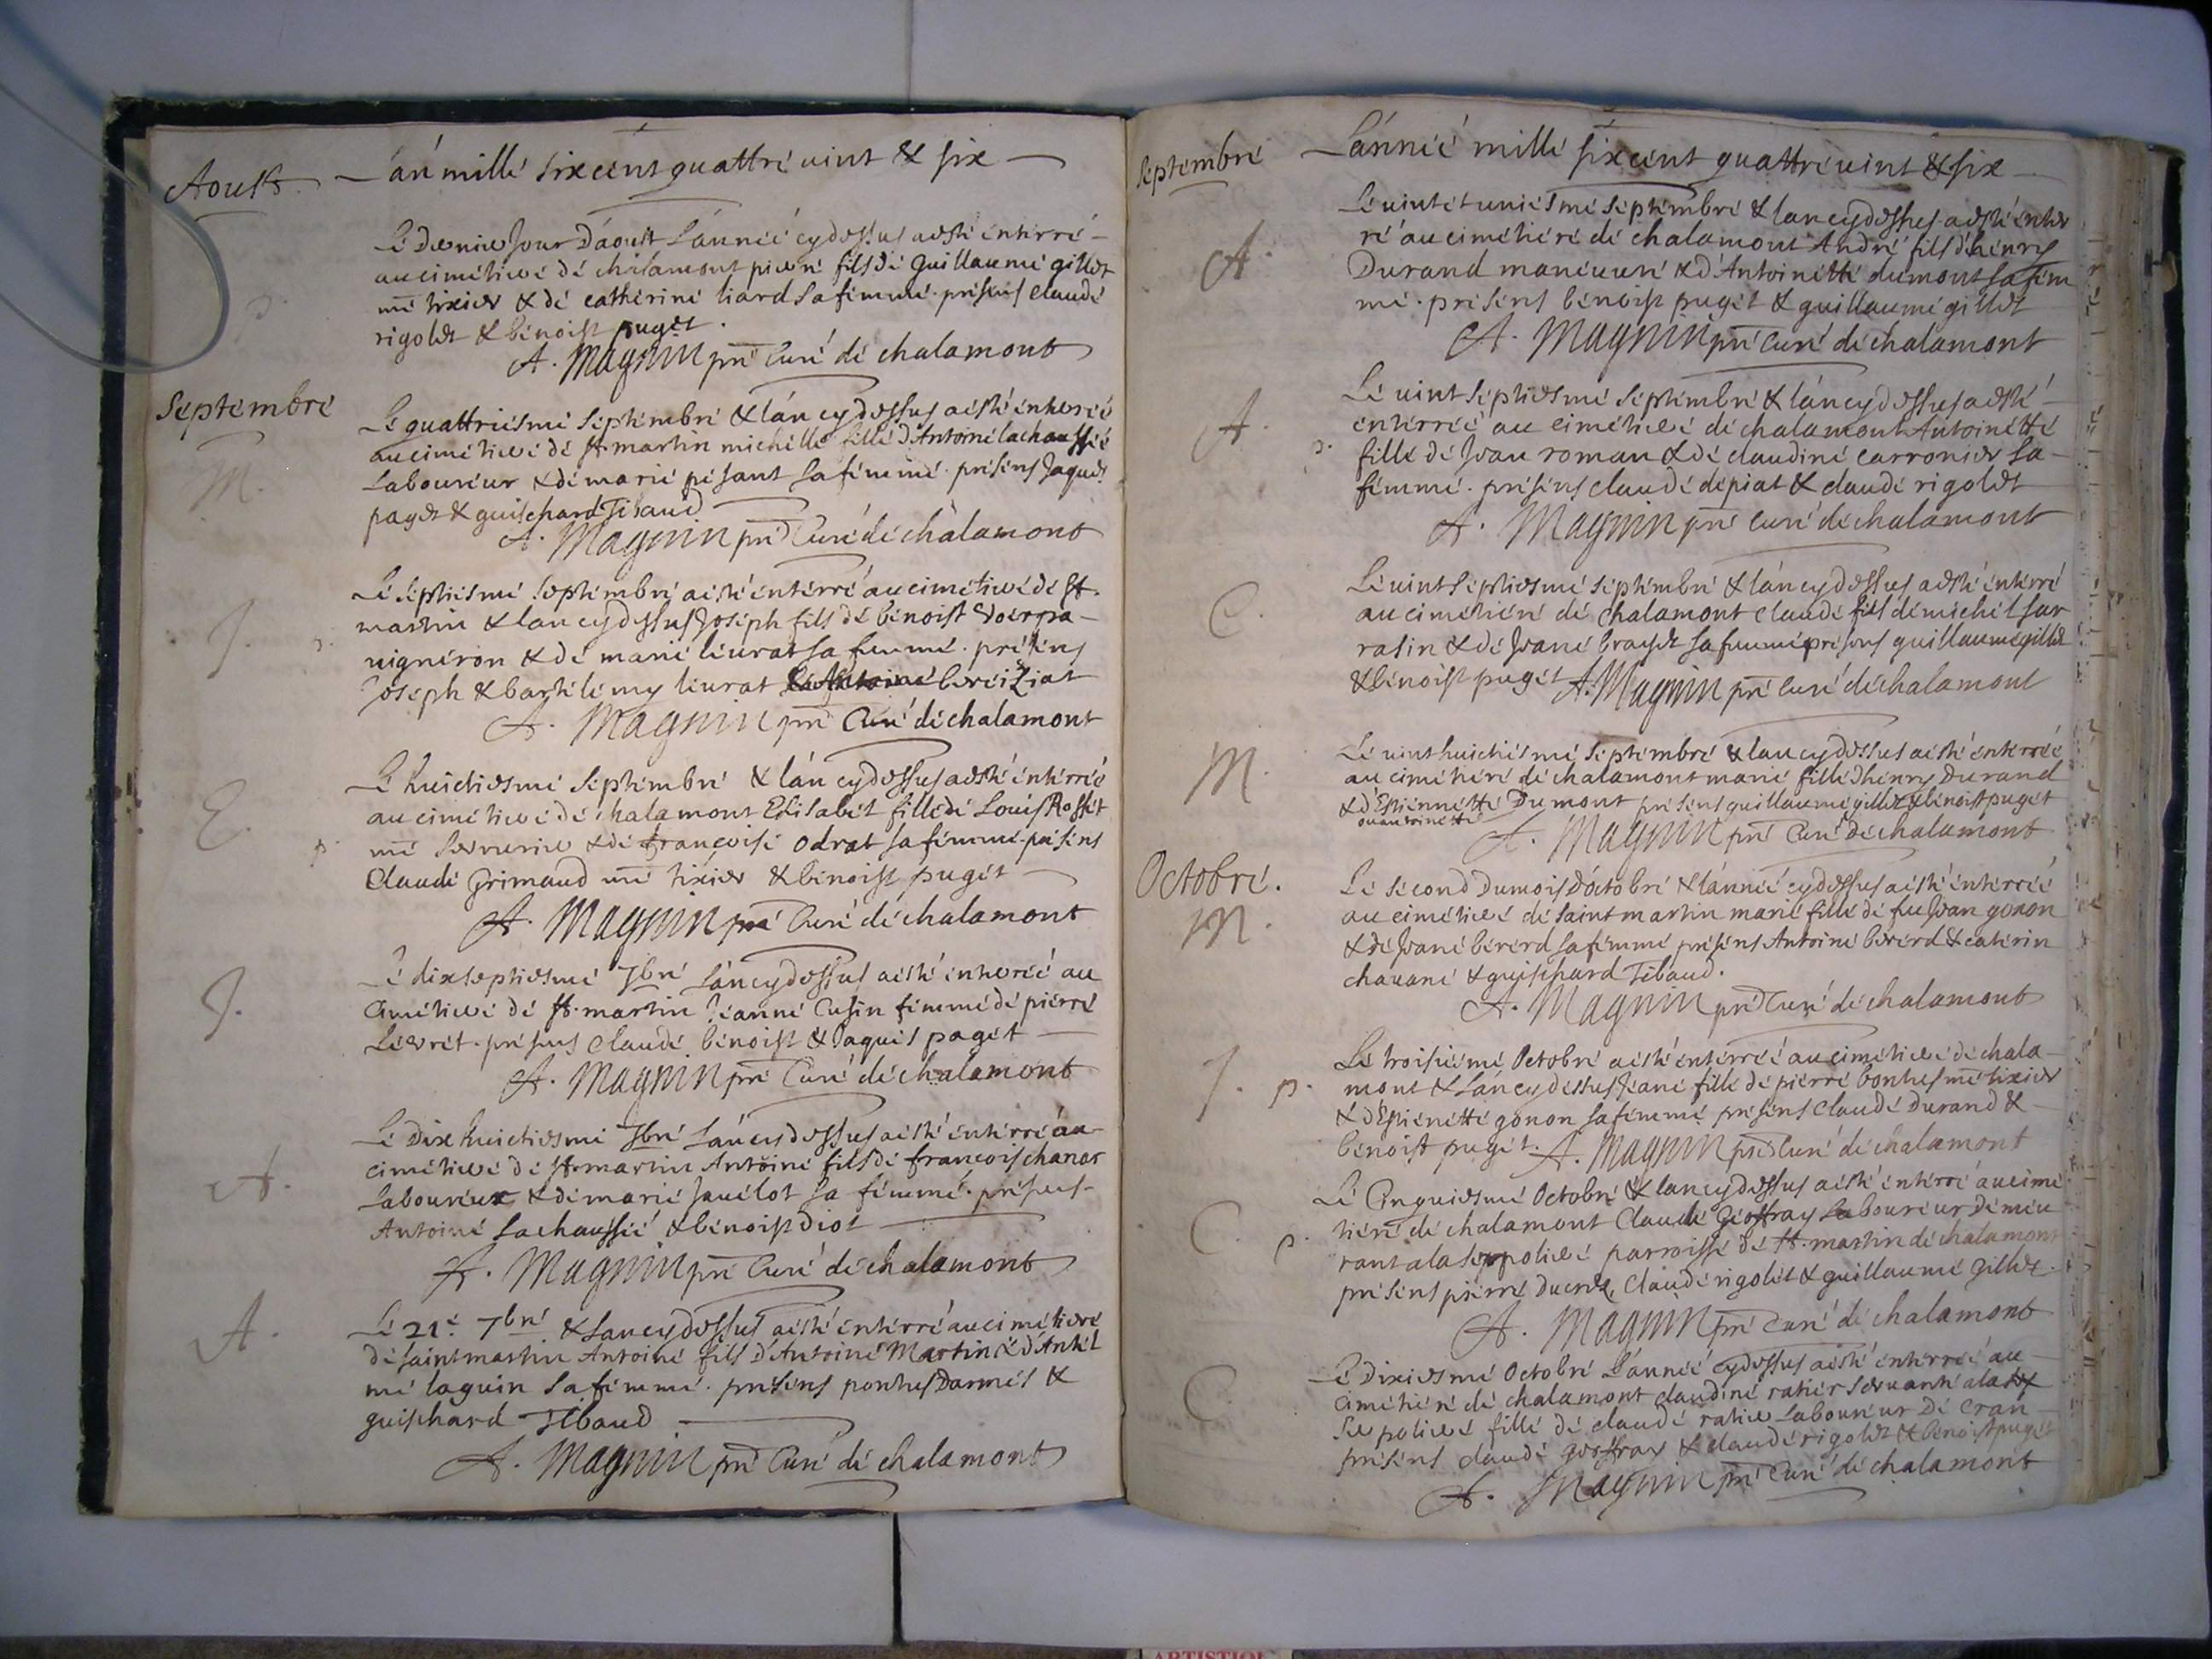 Aoust
L'an mille six cent quattre vint & six
Le dernier Jour D'aoust L'année cydessus a esté enterré
au cimetiere de chalamont pierre fils de Guillaume gillet
P.
me tixier & de catherine liard sa femme. presens claude
rigolet & benoist puget.
A. Magnin pre Curé de chalamont
Septembre
Le quattriesme Septembre & l'an cydessus a esté enterrée
au cimetiere de st martin michelle fille d'Antoine lachaussée
M.
Laboureur & de marie pesant sa femme. presens Jaques
paget & guischard Tibaud
A. Magnin pre Curé de chalamont
Le septiesme septembre a esté enterré au cimetiere de st
martin & lan cydessus Joseph fils de benoist
J.
uigneron & de marie leurat sa femme. presens
Joseph & bartelemy leurat
A. Magnin pre Curé de chalamont
Le huictiesme Septembre & l'an cydessus a esté enterrée
au cimetiere de chalamont Elisabet fille de Louis Rosset
E.
me serrurier & de françoise odrat sa femme. presens
Claude Grimaud me tixier & benoist puget
A. Magnin pre Curé de chalamont
Le dixseptiesme 7bre L'an cydessus a esté enterrée au
J.
Cimetiere de st. martin Jeanne Cusin femme de pierre
Levret. presens Claude benoist & Jaques paget
A. Magnin pre Curé de chalamont
Le Dix huictiesme 7bre L'an cydessus a esté enterré au
A.
cimetiere de st martin Antoine fils de francois chanar
Laboureur & de marie Jauelot sa femme. presens
Antoine Lachaussée & benoist diot
A. Magnin pre Curé de chalamont
A.
Le 21e 7bre & Lan cydessus a esté enterré au cimetiere
de saint martin Antoine fils d'Antoine Martin & d'Antel
me laguin sa femme. presens ponthus Darmes &
guischard Tibaud
A. Magnin pre Curé de chalamont
Septembre
L'année mille six cent quattre uint & six
Le uint et uniesme Septembre & lan cydessus a esté enter
ré au cimetiere de chalamont André fils d'henry
A.
Durand maneuure & d'Antoinette dumont sa fem
me. presens benoist puget & guillaume gillet
A. Magnin pre Curé de chalamont
Le uint septiesme Septembre & l'an cydessus a esté
A.
enterrée au cimetiere de chalamont Antoinette
fille de Jean roman & de claudine carronier sa
femme. presens claude depiat & claude rigolet
A. Magnin pre Curé de chalamont
Le uint septiesme septembre & l'an cydessus a esté enterré
C.
au cimetiere de chalamont claude fils de michel sar
rasin & de Jeane brayet sa femme presens guillaume gillet
& benoist puget A. Magnin pre Curé de chalamont
Le uint huictiesme Septembre & lan cydessus a esté enterrée
M.
au cimetiere de chalamont marie fille d'henry Durand
& d'Estiennette Dumont presens guillaume gillet & benoist puget
ou antoinette
A. Magnin pre Curé de chalamont
Octobre.
Le second du mois d'octobre & l'année cydessus a esté enterrée
M.
au cimetiere de saint martin marie fille de feu Jean gonon
& de Jeane bererd sa femme presens Antoine bererd & caterin
chauane & guischard Tibaud.
A. Magnin pre Curé de chalamont
Le troisieme Octobre a esté enterrée au cimetiere de chala
J. p.
mont & L'an cydessus Jeane fille de pierre bonhus me tixier
& d'Estienette gonon sa femme presens Claude Durand &
benoist puget. A. Magnin pre Curé de chalamont
Le Cinquiesme Octobre & lan cydessus a esté enterré au cime
C. p.
tiere de chalamont Claude Geoffray Laboureur demeu
rant a la serpoliere parroisse de st. martin de chalamont
presens pierre Ducret, Claude rigolet & guillaume gillet.
A. Magnin pre Curé de chalamont
Le Dixiesme Octobre L'année cydessus a esté enterrée au
C.
cimetiere de chalamont claudine ratier seruante a la
Serpoliere fille de claude ratier Laboureur de cran
presens claude geoffray & claude rigolet & benoist puget
A. Magnin pre Curé de chalamont